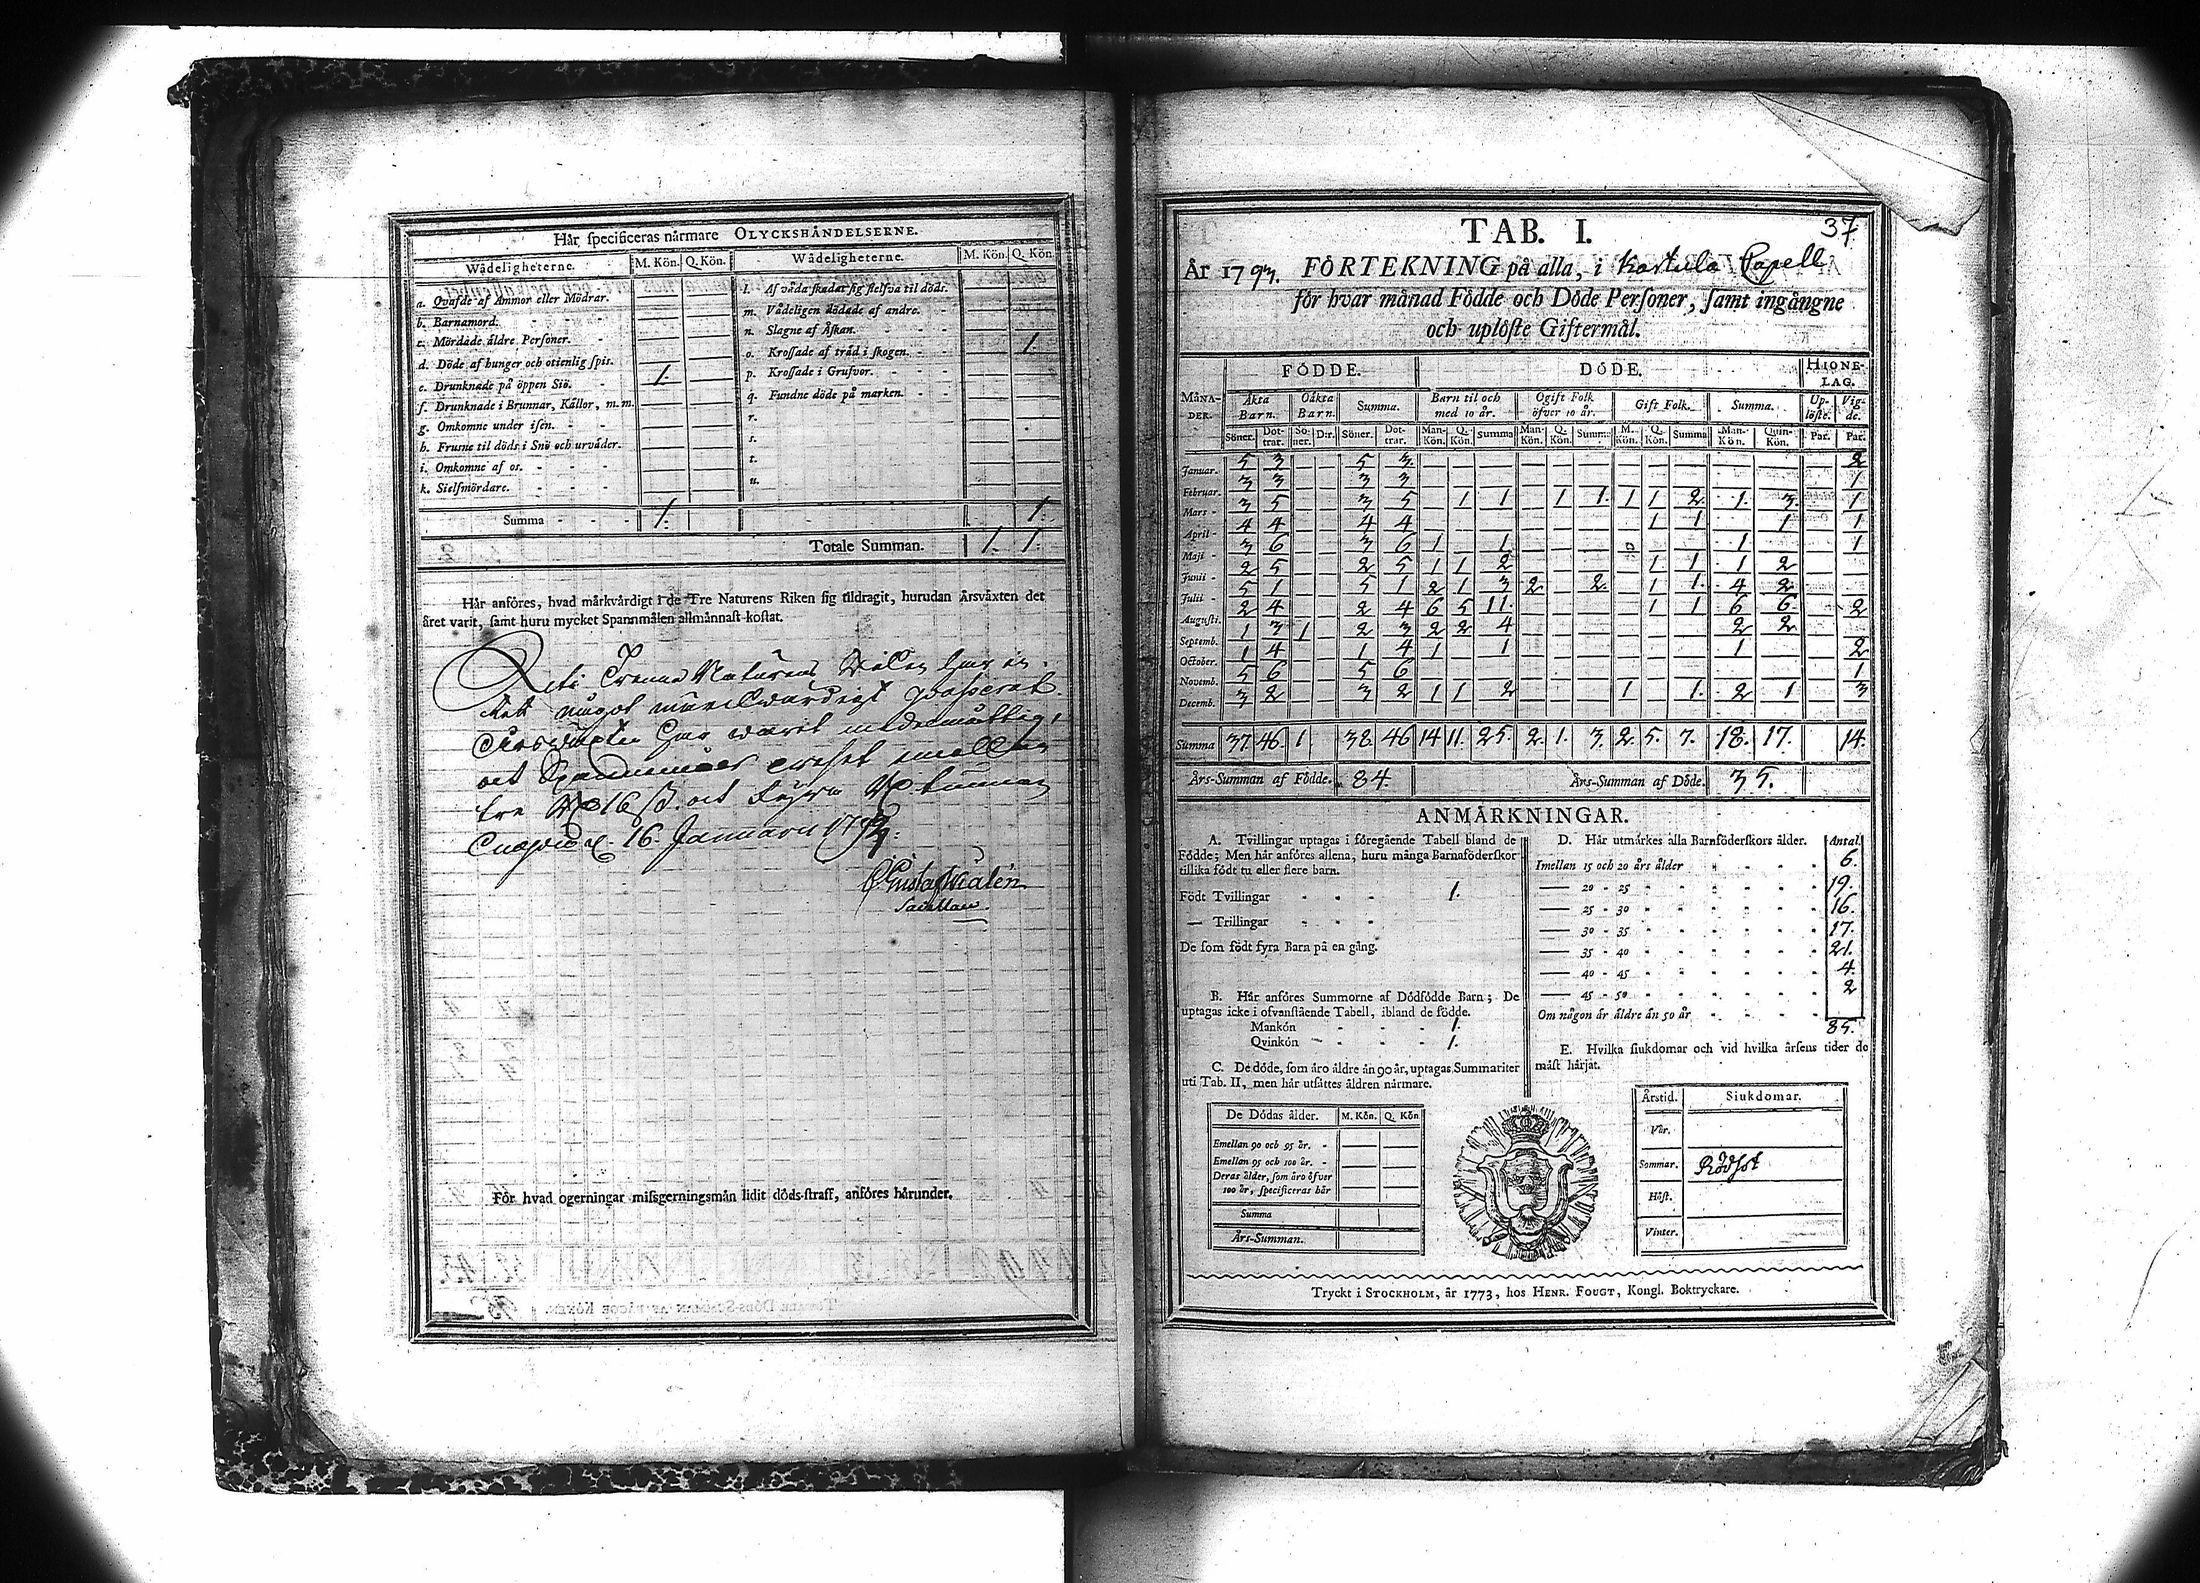 Hår specificeras nårmare OLYCKSHÅNDELSERNE.
Wådeligheterne. M. Kön. Q. Kön. Wådeligheterne. M. Kön. Q. Kön.
a. Qvafde af Ammor eller Mödrar.
b. Barnamord.
c. Mördade åldre Personer.
d. Döde af hunger och otienlig spis.
e. Drunknade på öppen Siö. 1.
f. Drunknade i Brunnar, Kållor, m.m.
g. Omkomne under isen.
h. Frusne til döds i Snö och urvåder.
i. Omkomne af os.
k. Sielfmördare.
l. Af våda skadat sig sielfva til döds.
m. Vådeligen dödade af andre.
n. Slagne af Åskan.
o. Krossade af tråd i skogen. 1.
p. Krossade i Grufvor.
q. Fundne döde på marken.
r.
s.
t.
u.
Summa 1. 1.
Totale Summan. 1. 1.
Hår anföres, hvad mårkvårdigt i de Tre Naturens Riken sig tildragit, hurudan Årsvåxten det
året varit, samt huru mycket Spannmålen allmånnast kostat.
Uti Trenne Naturens Riken har in
tet något märckwärdigt passerat
Årswäxten har warit medelmåttig,
och Spannemåls priset emellan
tre Rd 16 ß. och fyra Rd tunnan
16. Januarii 1794.
Gustaf Walén
Sacellan.
För hvad ogerningar missgerningsmån lidit döds-straff, anföres hårunder.
37
TAB. I.
År 1793. FÖRTEKNING på alla, i Karstula Capell
för hvar månad Födde och Döde Personer, samt ingångne
och uplöste Giftermål.
MÅNA-DER. FÖDDE. DÖDE. HIONE-LAG.
Åkta Barn. Oåkta Barn. Summa. Barn til och med 10 år. Ogift Folk öfver 10 år. Gift Folk. Summa. Up-löste. Vig-de.
Söner. Döt-trar. Sö-ner. Dtr. Söner. Döt-trar. Man-Kön. Q. Kön. Summa Man-Kön. Q. Kön. Summa M. Kön. Q. Kön. Summa Man-Kön. Quin-Kön. Par. Par.
Januar. 5 3 5 3 2
Februar. 3 3 3 3 1
Mars 3 5 3 5 1 1 1 1 1 1 2 1 3 1
April 4 4 4 4 1 1 1 1
Maji 3 6 3 6 1 1 1 1
Junii 2 5 2 5 1 1 2 1 1 1 2
Julii 5 1 5 1 2 1 3 2 2 1 1 4 2
Augusti. 2 4 2 4 6 5 11 1 1 6 6 2
Septemb. 1 3 1 2 3 2 2 4 2 2
October. 1 4 1 4 1 1 1 2
Novemb. 5 6 5 6 1
Decemb. 3 2 3 2 1 1 2 1 1 2 1 3
Summa 37. 46. 1. 38. 46 14 11. 25. 2. 1. 3. 2. 5. 7. 18. 17. 14.
Års-Summan af Födde. 84. Års-Summan af Döde. 35.
ANMÅRKNINGAR.
A. Tvillingar uptagas i föregående Tabell bland de
Födde; Men hår anföres allena, huru många Barnaföderskor
tillika födt tu eller flere barn.
Födt Tvillingar 1.
— Trillingar
De som födt fyra Barn på en gång.
B. Hår anföres Summorne af Dödfödde Barn; De
uptagas icke i ofvanstående Tabell, ibland de födde.
Mankön 1.
Qvinkön 1.
C. De döde, som åro åldre ån 90 år, uptagas Summariter
uti Tab. II, men hår utsåttes åldren nårmare.
De Dödas ålder. M. Kön. Q. Kön
Emellan 90 och 95 år.
Emellan 95 och 100 år.
Deras ålder, som åro öfver
100 år, specificeras hår
Summa
Års-Summan.
D. Hår utmårkes alla Barnföderskors ålder. Antal.
Imellan 15 och 20 års ålder 6.
— 20 - 25 19.
— 25 - 30 16.
— 30 - 35 17.
— 35 - 40 21.
— 40 - 45 4.
— 45 - 50 2
Om någon år åldre ån 50 år
85.
E. Hvilka siukdomar och vid hvilka årsens tider de
måst hårjat.
Årstid. Siukdomar.
Vår.
Sommar. Rödsot
Höst.
Vinter.
Tryckt i STOCKHOLM, år 1773, hos HENR. FOUGT, Kongl. Boktryckare.